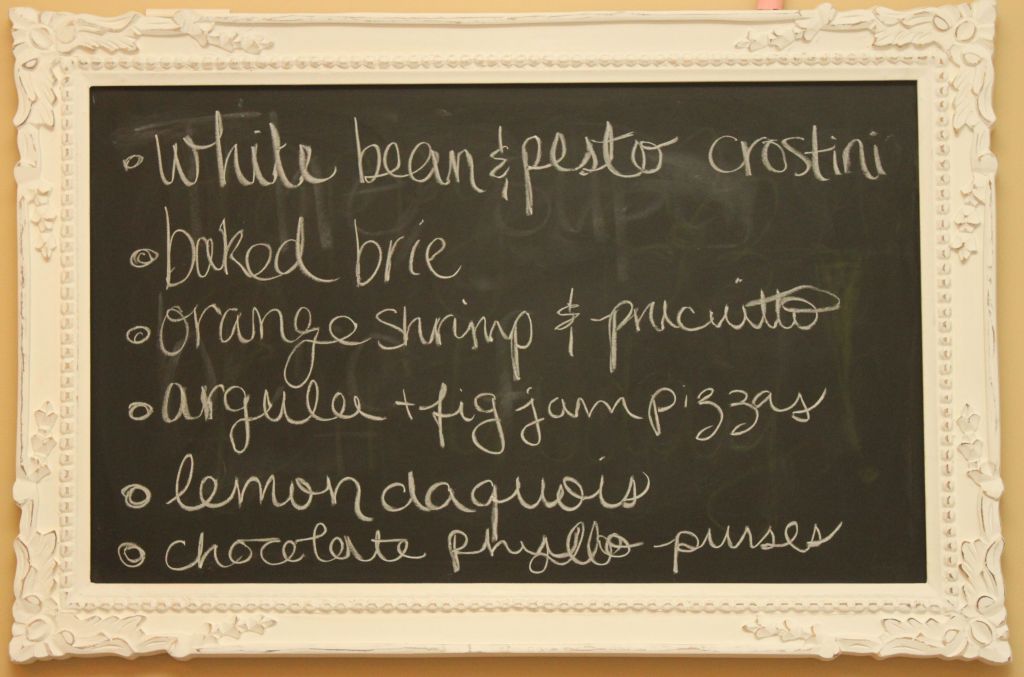 white bean & pesto crostini
baked brie
orange shrimp & prucuitto
argulee + fig jam pizzas
lemon daquois
chocolate phyllo purses